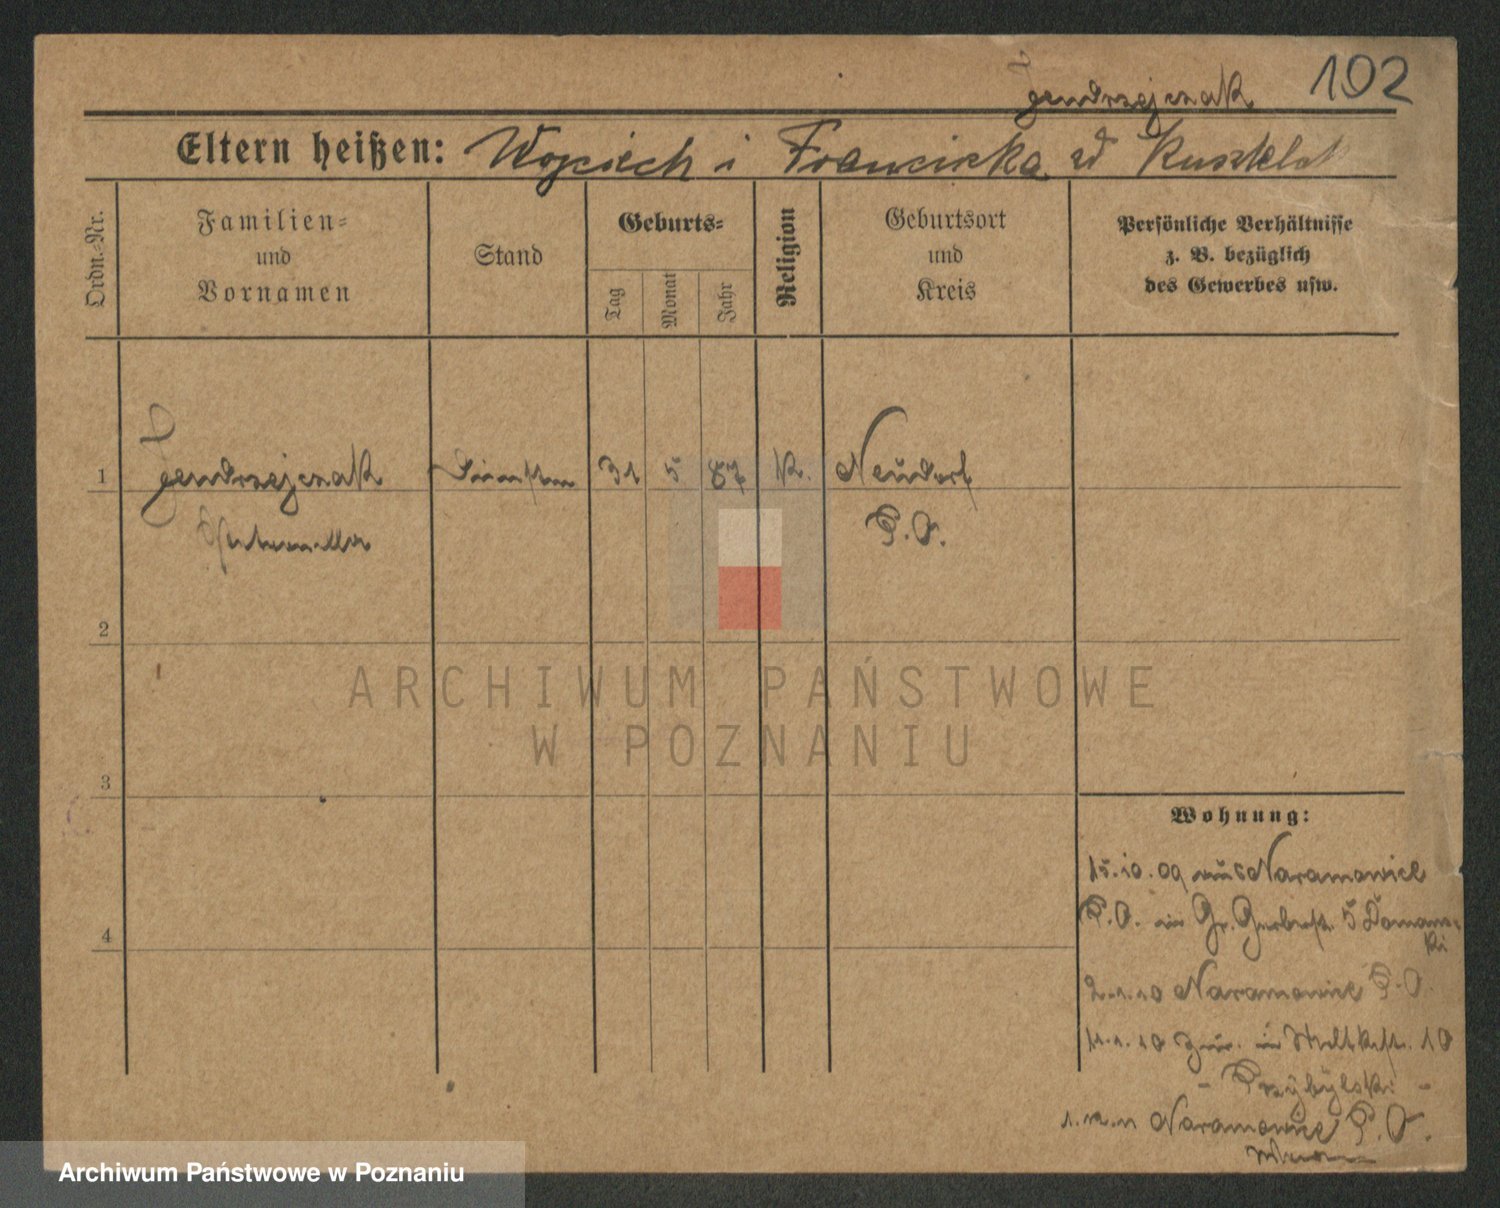 192
Jendrzejczak
Eltern heißen: Wojciech i Franciszka zd
Ordn.-Nr.
Familien-
und
Vornamen
Stand
Geburts-
Tag
Monat
Jahr
Religion
Geburtsort
und
Kreis
Persönliche Verhältnisse
z. B. bezüglich
des Gewerbes usw.
1
Jendrzejczak
31
5
87
K.
Neudorf
P.O.
2
ARCHIWUM PAŃSTWOWE
W POZNANIU
3
Wohnung:
15.10.09 aus Naramowice
P.O. in Gr. Gerberstr. 5 Domans-
ki
2.1.10 Naramowice P.O.
11.1.10 zur. in 10
- Przybylski -
Naramowice P.O.
4
Archiwum Państwowe w Poznaniu